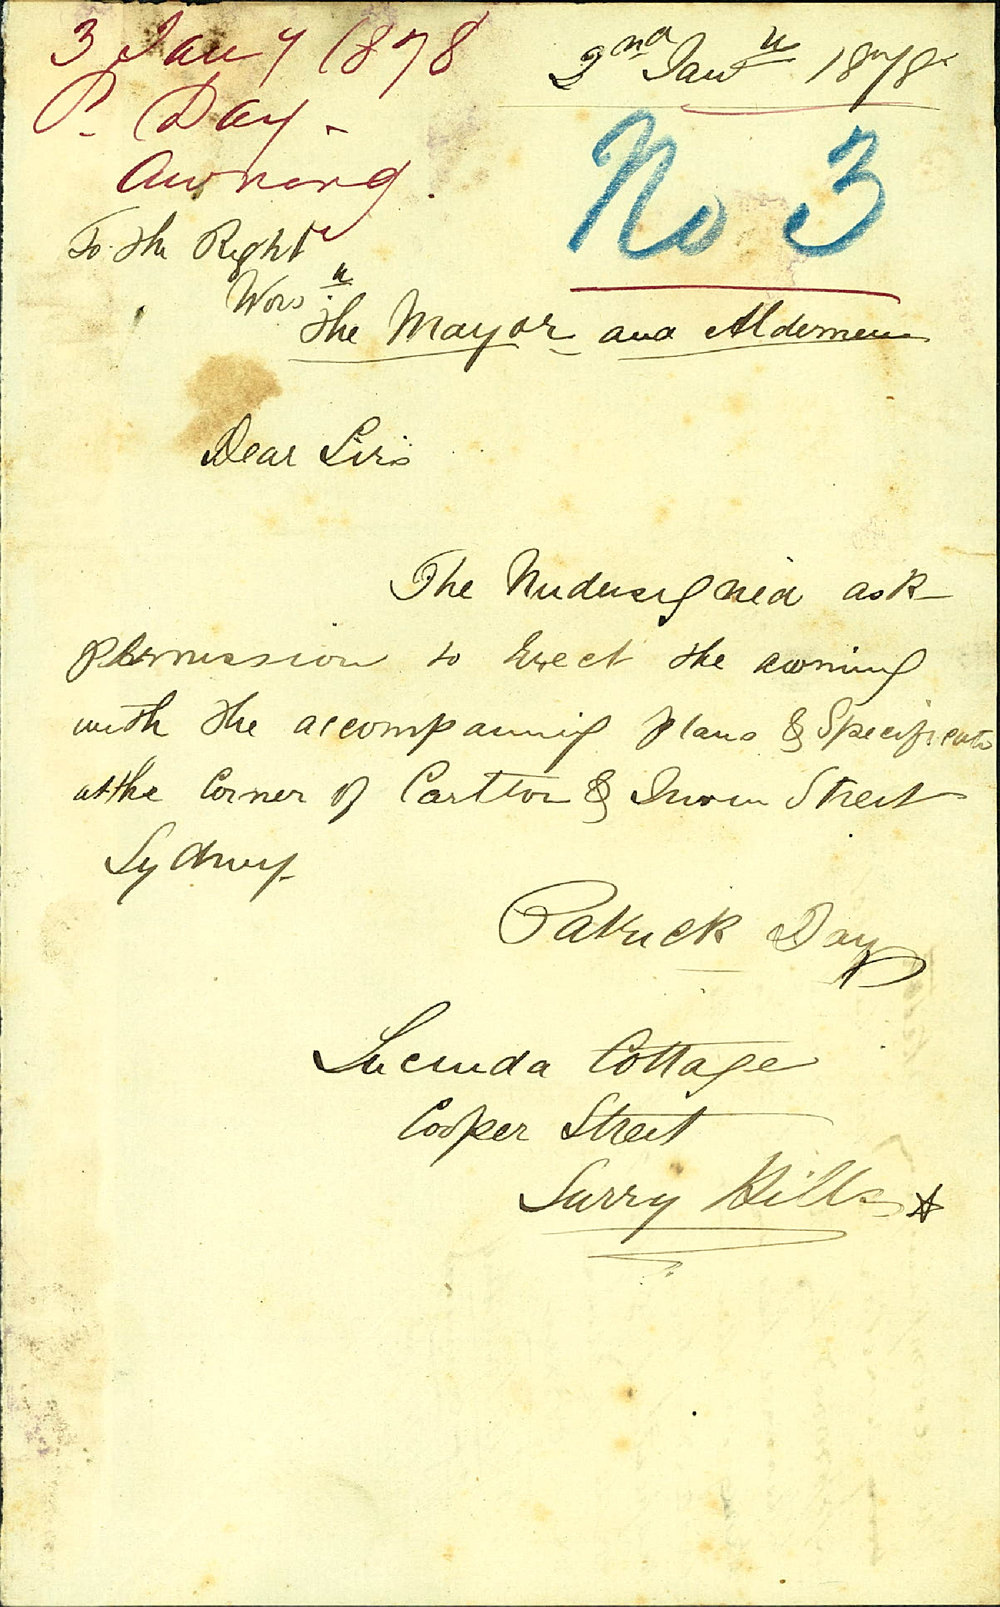 3 Jany 1878
P. Day -
Awning.
2nd Jany 1878
No 3
To the Right
Wors
The Mayor and Aldermen
Dear Sirs
The Undersigned ask
permission to Erect the awning
with the accompannig plans & Specificats
at the Corner of & Street
Sydney
Patrick Day
Lucinda Cottage
Cooper Street
Surry Hills